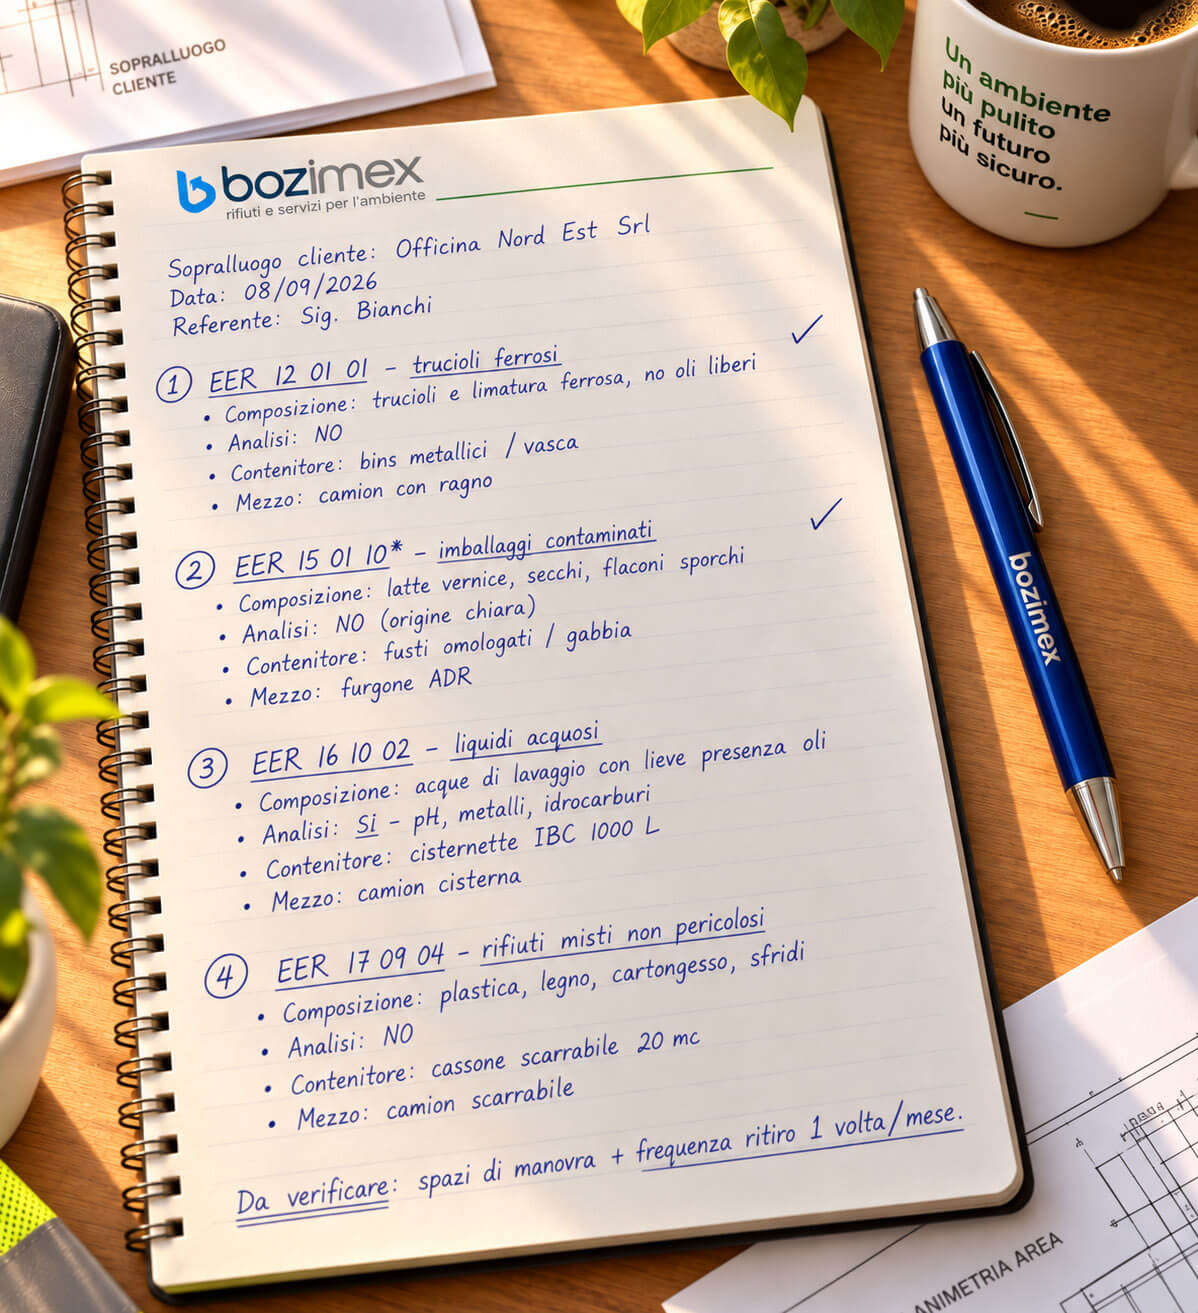 SOPRALLUOGO
CLIENTE
Un ambiente
più pulito
un futuro
più sicuro.
bozimex
rifiuti e servizi per l'ambiente
Sopralluogo cliente: Officina Nord Est Srl
Data: 08/09/2026
Referente: Sig. Bianchi
1 EER 12 01 01 - trucioli ferrosi ✓
• Composizione: trucioli e limatura ferrosa, no oli liberi
• Analisi: NO
• Contenitore: bins metallici / vasca
• Mezzo: camion con ragno
2 EER 15 01 10* - imballaggi contaminati ✓
• Composizione: latte vernice, secchi, flaconi sporchi
• Analisi: NO (origine chiara)
• Contenitore: fusti omologati / gabbia
• Mezzo: furgone ADR
3 EER 16 10 02 - liquidi acquosi
• Composizione: acque di lavaggio con lieve presenza oli
• Analisi: Si - pH, metalli, idrocarburi
• Contenitore: cisternette IBC 1000 L
• Mezzo: camion cisterna
4 EER 17 09 04 - rifiuti misti non pericolosi
• Composizione: plastica, legno, cartongesso, sfridi
• Analisi: NO
• Contenitore: cassone scarrabile 20 mc
• Mezzo: camion scarrabile
Da verificare: spazi di manovra + frequenza ritiro 1 volta/mese.
bozimex
ANIMETRIA AREA